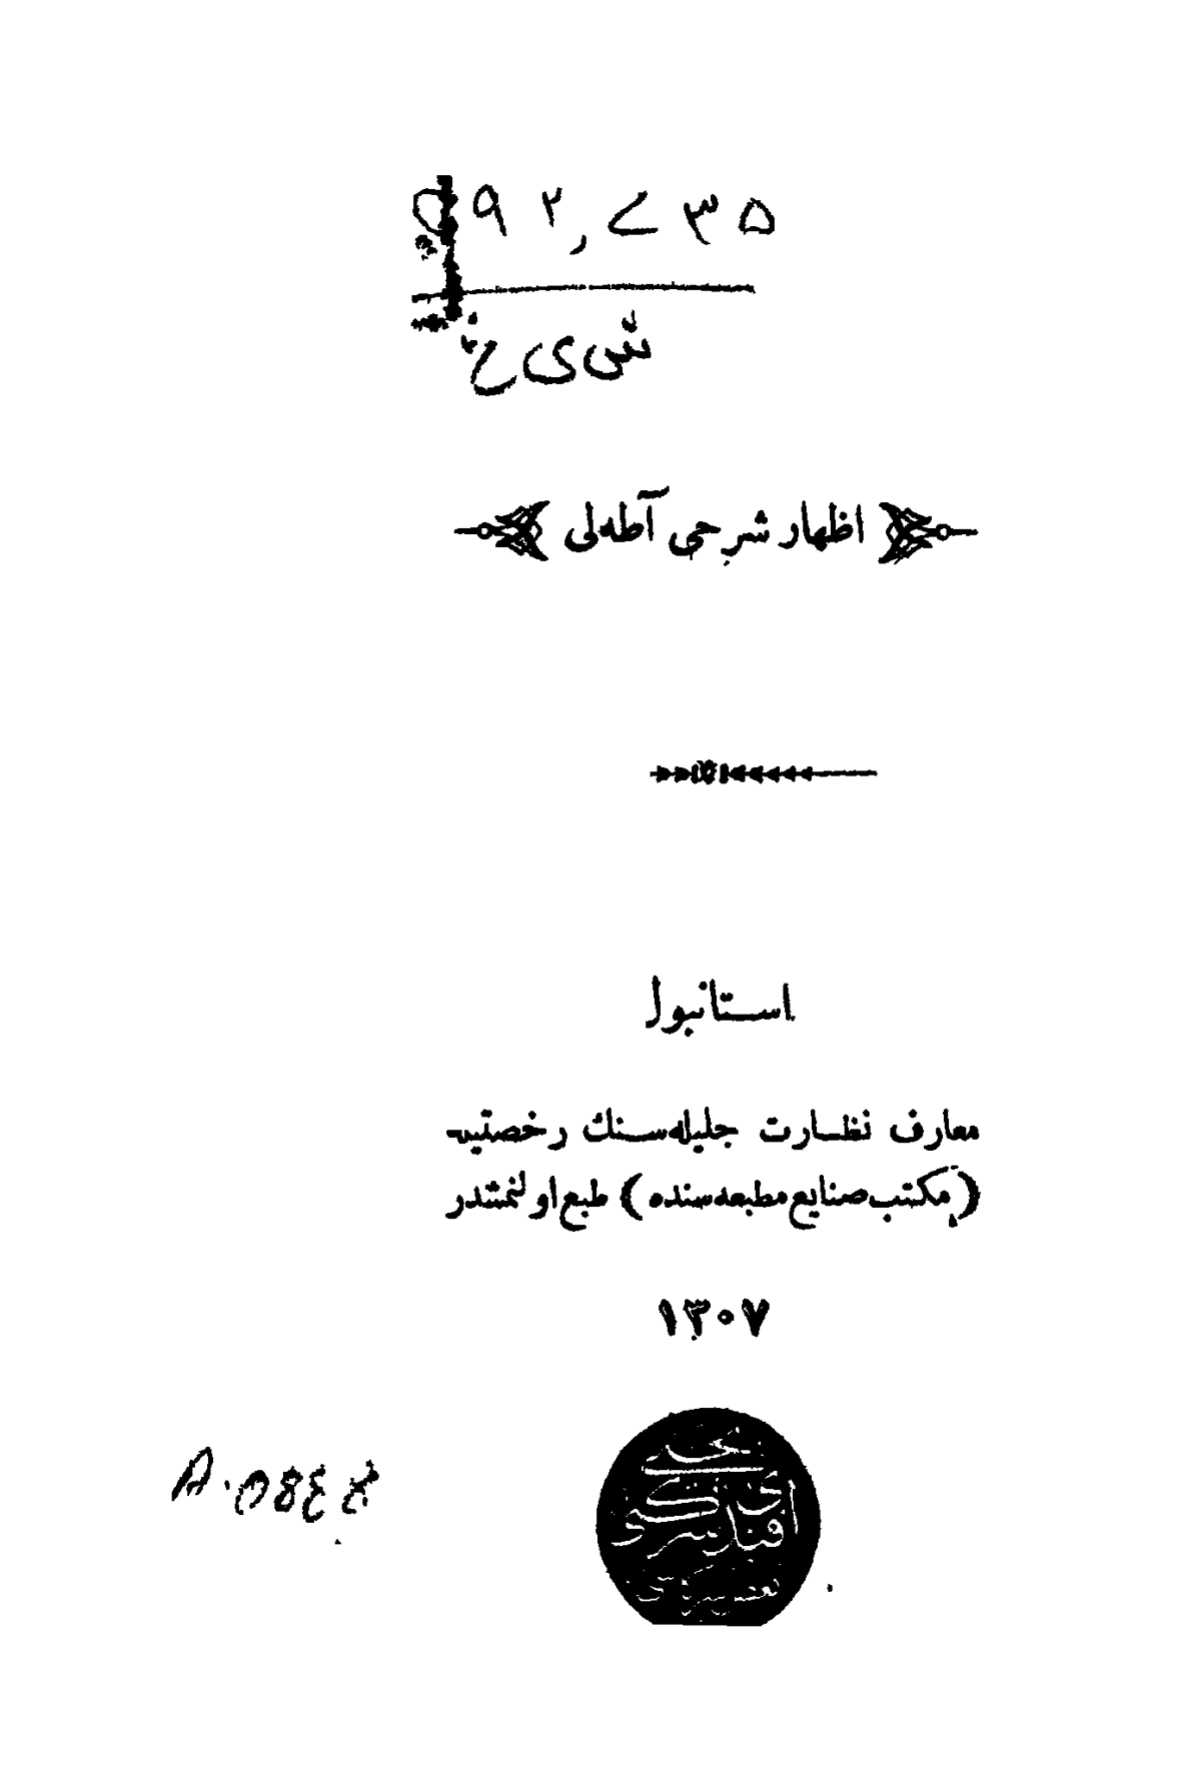 ۹۲,۷۳۵
ش ی خ
اظهار شرحی آطه‌لی
استانبول
معارف نظارت جلیله‌سنك رخصتیله
(مکتب صنایع مطبعه‌سنده) طبع اولنمشدر
۱۳۰۷